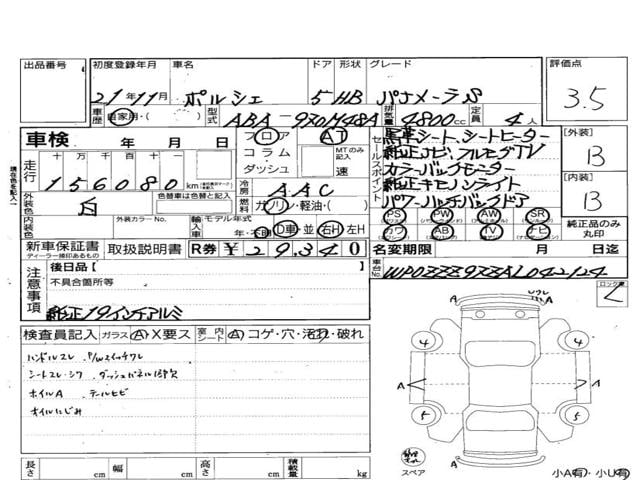 出品番号 初度登録年月 車名 ドア 形状 グレード 評価点
21年11月 ポルシェ 5 HB パナメーラS 3.5
車歴 自家用・( ) 型式 ABA-970M48A 排気量 4800cc 定員 4人
車検 年 月 日 フロア AT
コラム・ダッシュ MTのみ記入 速
走行 十万 万 千 百 十 一
156080km
冷房 AAC
燃料 ガソリン・軽油・( )
セールスポイント
黒革シート、シートヒーター
純正ナビ、フルセグTV
カラーバックモニター
純正キセノンライト
パワーバックドア
[外装] B
[内装] B
外装色 白 外装カラーNo. 色替車は色替と記入
内装色 輸入車 モデル年式 年 D車・並 右H 左H
PS PW AW SR
カワ AB TV ナビ
純正品のみ丸印
新車保証書 ディーラー捺印あるもの 取扱説明書 R券 ¥29,340
名変期限 月 日迄
車台No. WP0ZZZ97ZAL042124
注意事項
後日品【 】
不具合箇所等
純正19インチアルミ
検査員記入 ガラス A・X要ス 室内シート A・コゲ・穴・汚れ・破れ
ハンドルスレ P/Wスイッチワレ
シートスレ・シワ ダッシュパネル1部欠
ホイルA テールヒビ
オイルにじみ
A
4 4
A A
5 5
A
スペア
小A有・小U有
長さ cm 幅 cm 高さ cm 積載量 kg